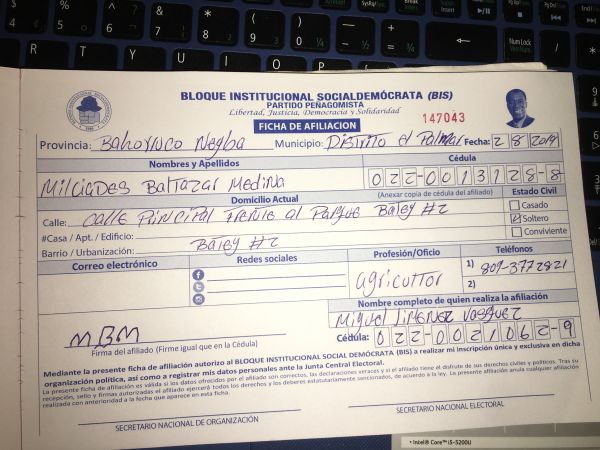 BLOQUE INSTITUCIONAL SOCIALDEMÓCRATA (BIS)
PARTIDO PEÑAGOMISTA
Libertad, Justicia, Democracia y Solidaridad
FICHA DE AFILIACION
147043
Provincia: Bahoruco Neyba Municipio: Distrito el Palmar Fecha: 2 8 2019
Nombres y Apellidos Cédula
Milciades Baltazar Medina 022-0013128-8
Domicilio Actual (Anexar copia de cédula del afiliado) Estado Civil
Calle: Calle Principal Frente al Parque Batey #2 Casado
#Casa / Apt. / Edificio: Soltero
Barrio / Urbanización: Batey #2 Conviviente
Correo electrónico Redes sociales Profesión/Oficio Teléfonos
agricultor 1) 809-3772821
2)
Nombre completo de quien realiza la afiliación
Miguel Jimenez Vasquez
MBM Cédula: 022-0021062-9
Firma del afiliado (Firme igual que en la Cédula)
Mediante la presente ficha de afiliación autorizo al BLOQUE INSTITUCIONAL SOCIAL DEMÓCRATA (BIS) a realizar mi inscripción única y exclusiva en dicha
organización política, así como a registrar mis datos personales ante la Junta Central Electoral.
La presente ficha de afiliación es válida si los datos ofrecidos por el afiliado son correctos, las declaraciones veraces y si el afiliado tiene el disfrute de sus derechos civiles y políticos. Tras su
recepción, sello y firmas autorizadas el afiliado ejercerá todos los derechos y los deberes estatutariamente sancionados, de acuerdo a la ley. La presente afiliación anula cualquier afiliación
realizada con anterioridad a la fecha que aparece en esta ficha.
SECRETARIO NACIONAL DE ORGANIZACIÓN SECRETARIO NACIONAL ELECTORAL
Intel® Core™ i5-5200U